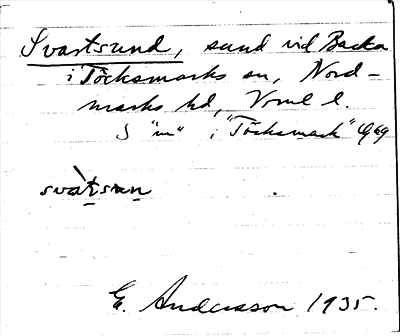 Svartsund, sund vid Backa
i Töcksmarks sn, Nord-
marks hd, Vrml l.
J "m" i "Töcksmark"
svàtsun
E. Andersson 1935.